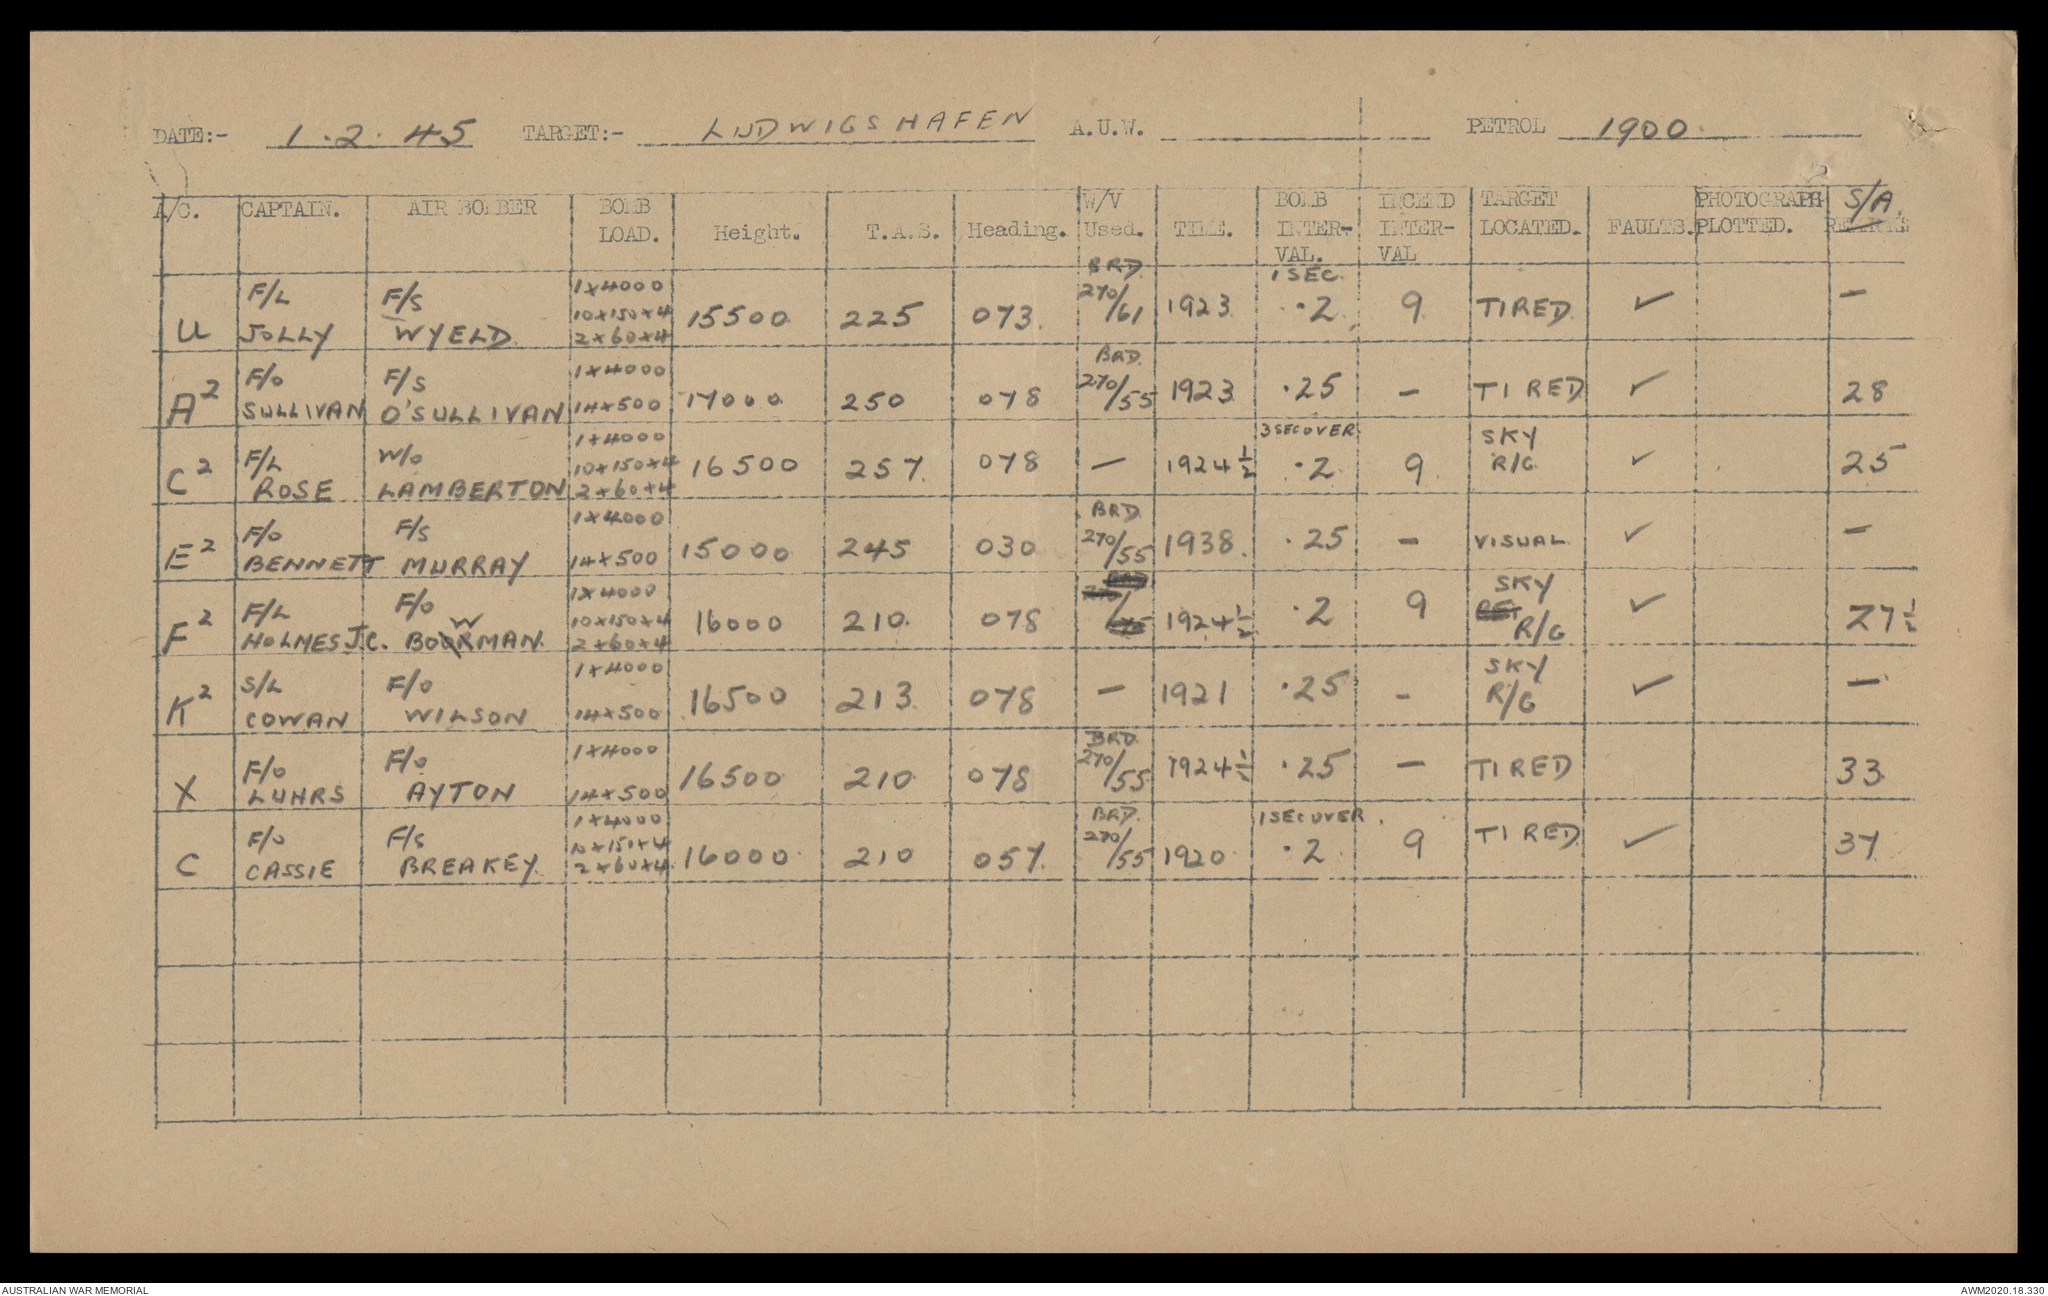 DATE:- 1.2.45 TARGET:- LUDWIGSHAFEN A.U.W. PETROL 1900.
A/C. CAPTAIN. AIR BOMBER BOMB LOAD. Height. T.A.S. Heading. W/V Used. TIME. BOMB INTER-VAL. INCEND INTER-VAL TARGET LOCATED. FAULTS. PHOTOGRAPH PLOTTED. S/A.
U F/L JOLLY F/S WYELD 1x4000 10x150x4 2x60x4 15500 225 073. BRD. 270/61 1923 1 SEC. .2 9 TIRED ✓ —
A2 F/O SULLIVAN F/S O'SULLIVAN 1x4000 14x500 17000 250 078 BRD. 270/55 1923 .25 — TIRED ✓ 28
C2 F/L ROSE W/O LAMBERTON 1x4000 10x150x4 2x60x4 16500 257. 078 — 1924½ 3 SEC OVER .2 9 SKY R/G ✓ 25
E2 F/O BENNETT F/S MURRAY 1x4000 14x500 15000 245 030 BRD. 270/55 1938. .25 — VISUAL ✓ —
F2 F/L HOLMES J.C. F/O BOWMAN. 1x4000 10x150x4 2x60x4 16000 210. 078 1924½ .2 9 SKY R/G ✓ 27½
K2 S/L COWAN F/O WILSON 1x4000 14x500 16500 213. 078 — 1921 .25 — SKY R/G ✓ —
X F/O LUHRS F/O AYTON 1x4000 14x500 16500 210 078 BRD. 270/55 1924½ .25 — TIRED 33
C F/O CASSIE F/S BREAKEY. 1x4000 10x150x4 2x60x4 16000 210 057. BRD. 270/55 1920 1 SEC OVER. .2 9 TIRED ✓ 37
AUSTRALIAN WAR MEMORIAL
AWM2020.18.330